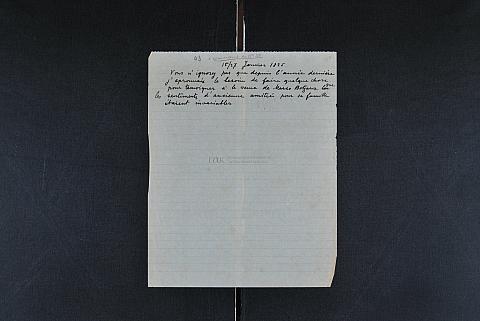 15/27 Janvier 1835
Vous n'ignorez pas que depuis l'année dernière
j'éprouvais le besoin de faire quelque chose
pour témoigner à la veuve de Marco Botzaris
les sentiments d'ancienne amitié pour sa famille
étaient invariables